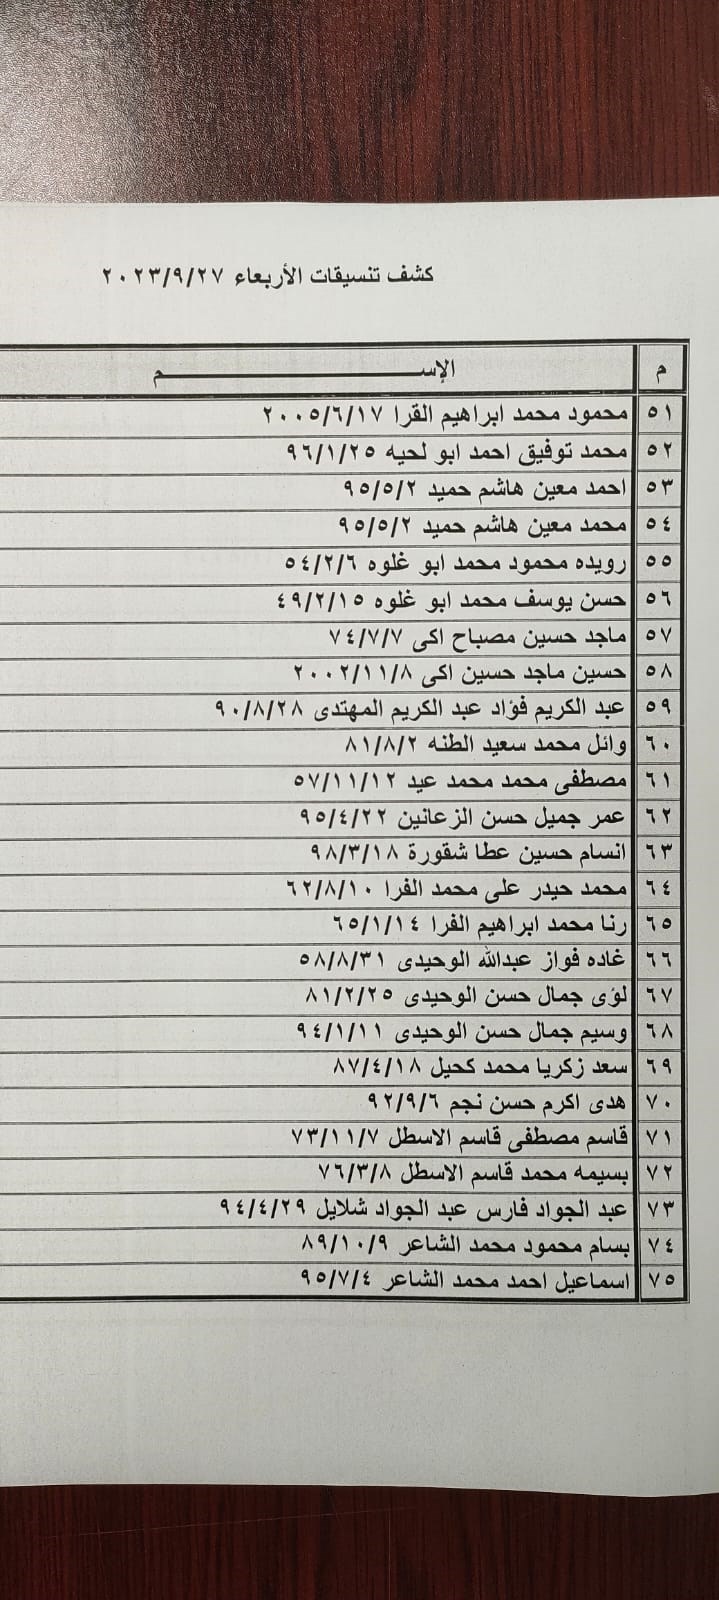 كشف تنسيقات الأربعاء ٢٠٢٣/٩/٢٧
م الإســـــــــم
٥١ محمود محمد ابراهيم القرا ٢٠٠٥/٦/١٧
٥٢ محمد توفيق احمد ابو لحيه ٩٦/١/٢٥
٥٣ احمد معين هاشم حميد ٩٥/٥/٢
٥٤ محمد معين هاشم حميد ٩٥/٥/٢
٥٥ رويده محمود محمد ابو غلوه ٥٤/٢/٦
٥٦ حسن يوسف محمد ابو غلوه ٤٩/٢/١٥
٥٧ ماجد حسين مصباح اكى ٧٤/٧/٧
٥٨ حسين ماجد حسين اكى ٢٠٠٢/١١/٨
٥٩ عبد الكريم فؤاد عبد الكريم المهتدى ٩٠/٨/٢٨
٦٠ وائل محمد سعيد الطنه ٨١/٨/٢
٦١ مصطفى محمد محمد عيد ٥٧/١١/١٢
٦٢ عمر جميل حسن الزعانين ٩٥/٤/٢٢
٦٣ انسام حسين عطا شقورة ٩٨/٣/١٨
٦٤ محمد حيدر على محمد الفرا ٦٢/٨/١٠
٦٥ رنا محمد ابراهيم الفرا ٦٥/١/١٤
٦٦ غاده فواز عبدالله الوحيدى ٥٨/٨/٣١
٦٧ لؤى جمال حسن الوحيدى ٨١/٢/٢٥
٦٨ وسيم جمال حسن الوحيدى ٩٤/١/١١
٦٩ سعد زكريا محمد كحيل ٨٧/٤/١٨
٧٠ هدى اكرم حسن نجم ٩٢/٩/٦
٧١ قاسم مصطفى قاسم الاسطل ٧٣/١١/٧
٧٢ بسيمه محمد قاسم الاسطل ٧٦/٣/٨
٧٣ عبد الجواد فارس عبد الجواد شلايل ٩٤/٤/٢٩
٧٤ بسام محمود محمد الشاعر ٨٩/١٠/٩
٧٥ اسماعيل احمد محمد الشاعر ٩٥/٧/٤